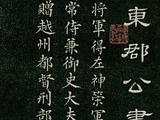 東郡公書
將軍得左神榮軍
常侍兼御史大夫
贈越州都督刑部